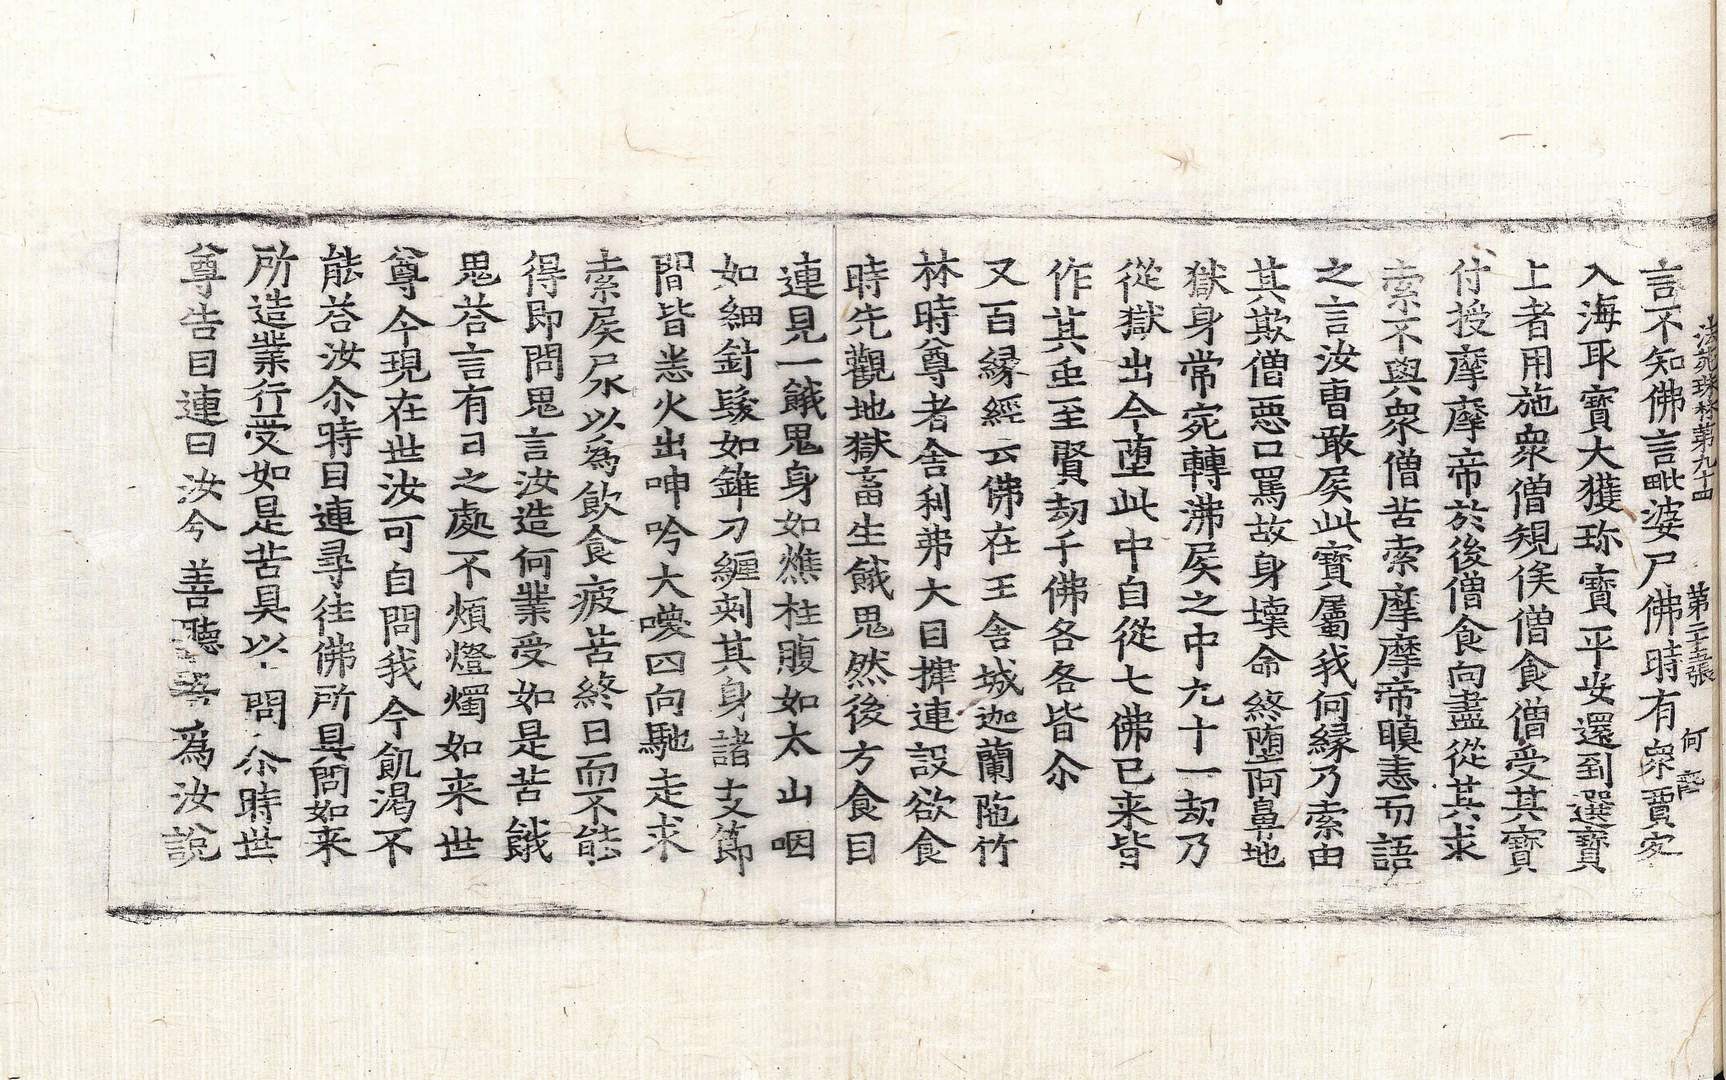 法苑珠林第九十四 第二十五張 何
言不知佛言毗婆尸佛時有衆賈客
入海取寶大獲珎寶平安還到選寶
上者用施衆僧規俟僧食僧受其寶
付授摩摩帝於後僧食向盡從其求
索不與衆僧苦索摩摩帝瞋恚而語
之言汝曺敢屎此寶屬我何縁乃索由
其欺僧惡口罵故身壞命終墮阿鼻地
獄身常宛轉沸屎之中九十一劫乃
從獄出今墮此中自從七佛已来皆
作其虫至賢劫千佛各各皆尒
又百縁經云佛在王舍城迦蘭陁竹
林時尊者舍利弗大目揵連設欲食
時先觀地獄畜生餓鬼然後方食目
連見一餓鬼身如燋柱腹如太山咽
如細針髮如錐刀纏刺其身諸支節
間皆悉火出呻吟大喚四向馳走求
索屎尿以爲飲食疲苦終日而不能
得即問鬼言汝造何業受如是苦餓
鬼荅言有日之處不煩燈燭如来世
尊今現在世汝可自問我今飢渴不
能荅汝尒時目連尋往佛所具問如来
所造業行受如是苦具以 問尒時世
尊告目連曰汝今善聽吾爲汝說